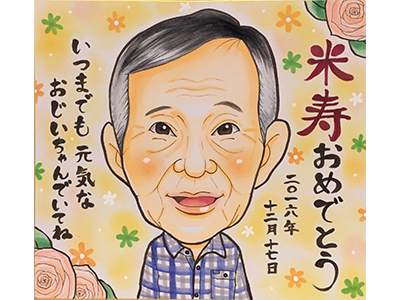 米寿おめでとう
二〇一六年
十二月十七日
いつまでも 元気な
おじいちゃんでいてね